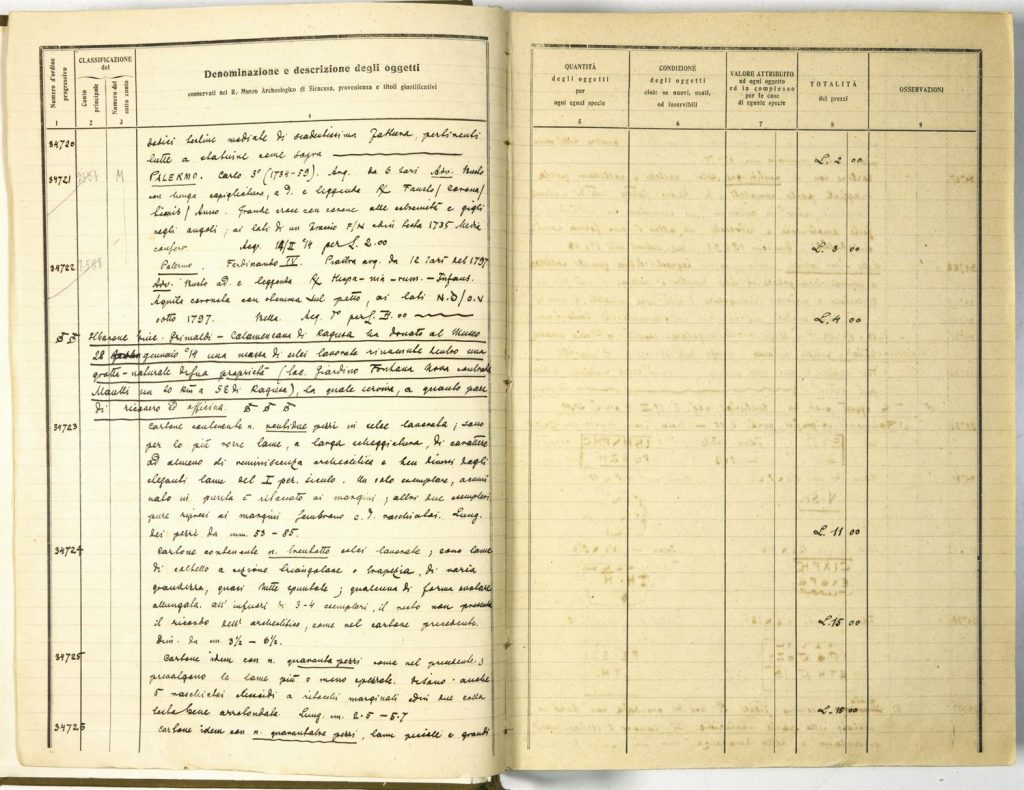 Numero d'ordine progressivo
CLASSIFICAZIONE del
Conto principale
Numero del sotto conto
Denominazione e descrizione degli oggetti
conservati nel R. Museo Archeologico di Siracusa, provenienza e titoli giustificativi
1 2 3 4
34720 dodici testine modiate di scadentissima fattura, pertinenti
tutte a statuine come sopra
34721 7587 M PALERMO. Carlo 3° (1734-59). Arg. da 6 tarì Adv. Busto
con lunga capigliatura, a D. e leggenda Rx Fausto / corona /
/ Anno. Grande croce con corone alle estremità e gigli
negli angoli; ai lati di un 1735 Media
conserv. Acq. II °14 per £. 2.00
34722 7588 Palermo. Ferdinando IV. Piastra arg. da 12 tarì del 1797
Adv. Busto a D. e leggenda Rx Hispa-nia-rum.-Infans.
Aquila coronata con stemma sul petto, ai lati N.D/O.V
sotto 1797. Bella. Acq. per £.
Il barone Grimaldi - Calamenzana di Ragusa ha donato al Museo
28 gennaio °14 una massa di selci lavorate rinvenute dentro una
grotta naturale di sua proprietà (loc. Giardino Fontana Nova contrada
un 20 Km a SE di Ragusa), la quale serviva, a quanto pare
di ricovero ed officina.
34723 Cartone contenente n. ventidue pezzi in selce lavorata; sono
per lo più rozze lame, a larga scheggiatura, di carattere
od almeno di reminiscenza archeolitica e ben diversi dagli
eleganti lame del I per. siculo. Un solo esemplare, acumi
nato in punta è ritoccato ai margini; altri due esemplari
pure ai margini sembrano o. d. raschiatoi. Lung.
dei pezzi da mm. 53 - 85.
34724 Cartone contenente n. trentotto selci lavorate; sono lame
di coltello a sezione triangolare o trapezia, di varia
grandezza, quasi tutte spuntate; qualcuna di forma ovolare
allungata. All'infuori di 3-4 esemplari, il resto non presenta
il ricordo dell'archeolitico, come nel cartone precedente.
Dim. da cm. 3½ - 6½.
34725 Cartone idem con n. quaranta pezzi come nel precedente;
prevalgono le lame più o meno spezzate. Notansi anche
5 raschiatoi a ritocchi marginali ed in due colla
testa bene arrotondata. Lung. cm. 2.5 - 5.7
34726 Cartone idem con n. quarantatre pezzi, lame piccole e grandi
QUANTITÀ degli oggetti per ogni egual specie
CONDIZIONE degli oggetti cioè: se nuovi, usati, od inservibili
VALORE ATTRIBUITO ad ogni oggetto ed in complesso per le cose di eguale specie
TOTALITÀ dei prezzi
OSSERVAZIONI
5 6 7 8 9
L. 2 00
L. 3 00
L. 4 00
L. 11 00
L. 15 00
L. 15 00